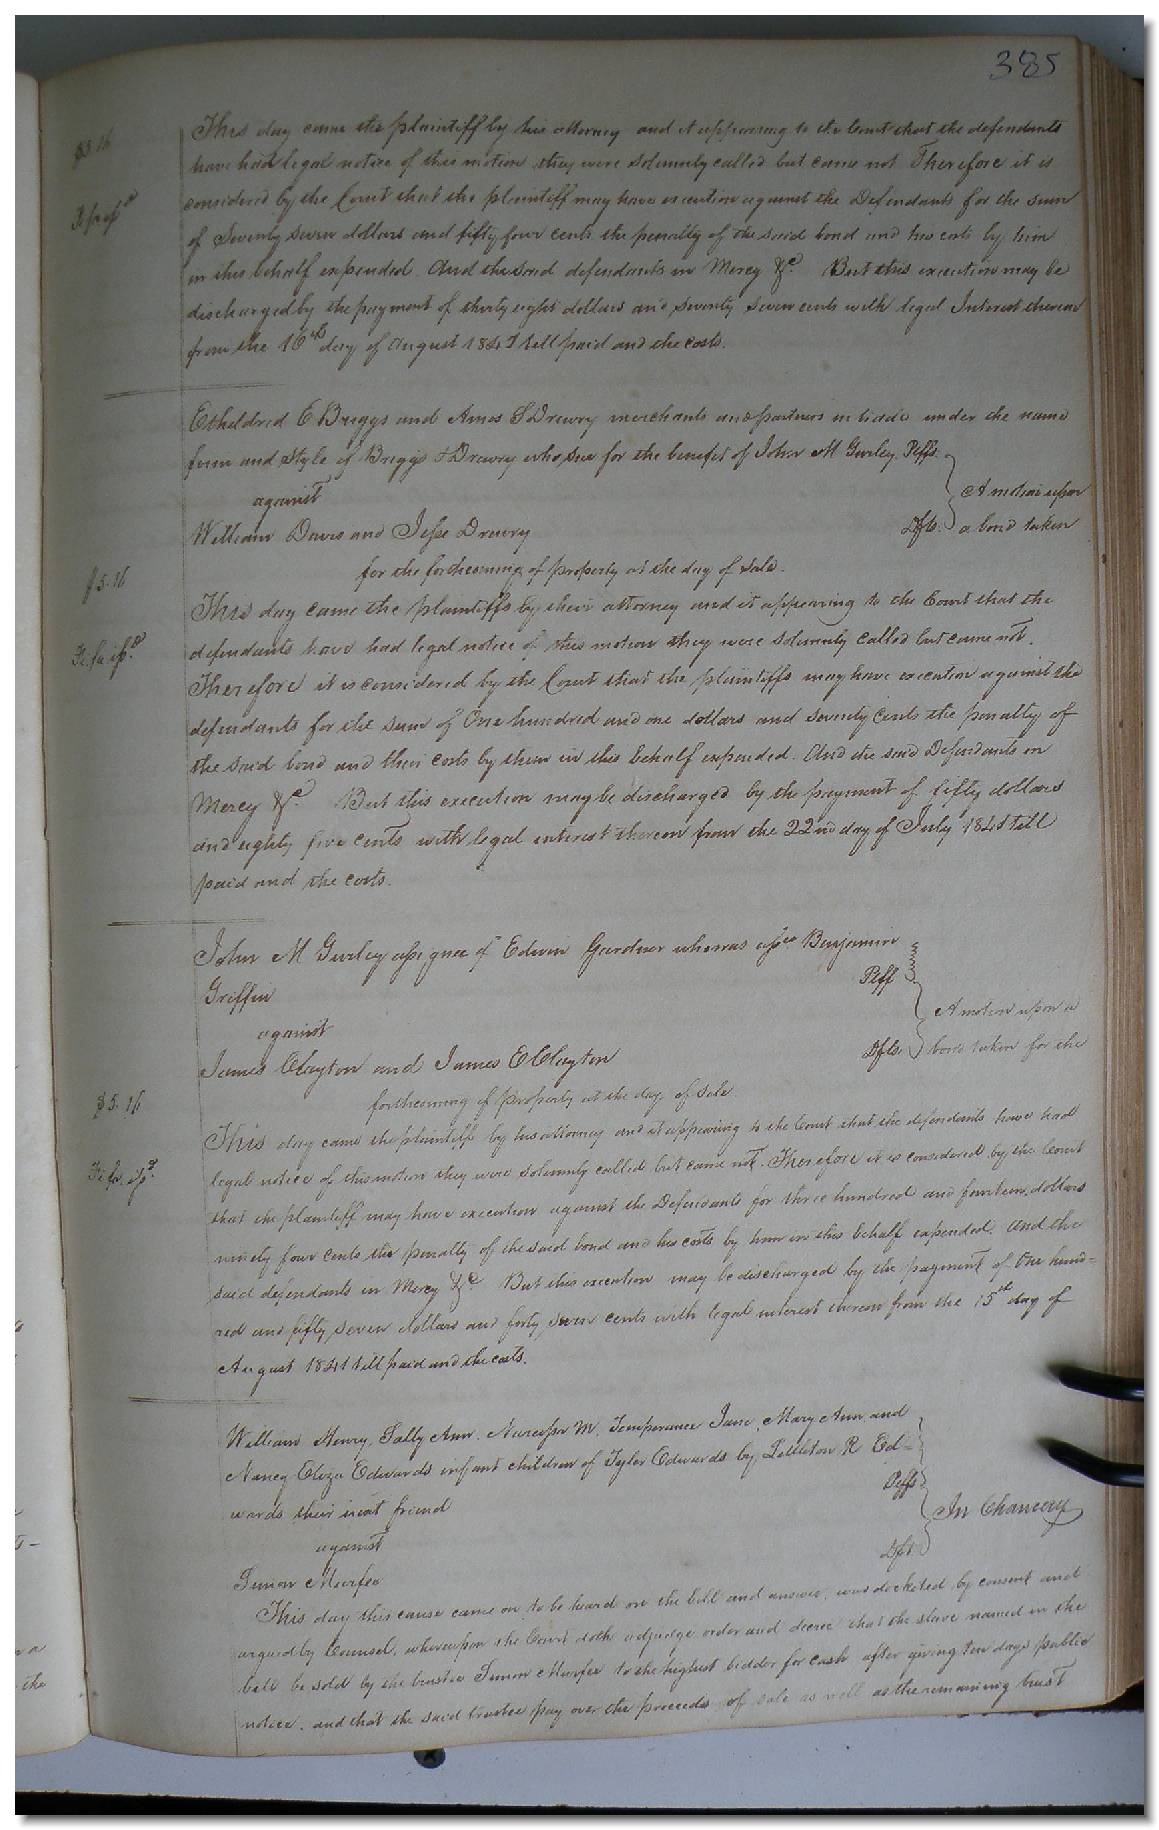 385
$5.16
This day came the plaintiff by his attorney and it appearing to the Court that the defendants
have had legal notice of this motion they were solemnly called but came not Therefore it is
considered by the Court that the plaintiff may have execution against the Defendants for the sum
of Seventy seven dollars and fifty four cents the penalty of the said bond and his costs by him
in this behalf expended. And the said defendants in Mercy &c. But this execution may be
discharged by the payment of thirty eight dollars and seventy seven cents with legal Interest thereon
from the 16th day of August 1841 till paid and the costs.
Etheldred E Briggs and Amos S Drewry merchants and partners in trade under the name
firm and style of Briggs & Drewry who sue for the benefit of John M Gurley Plffs.
against
A motion upon
William Davis and Jesse Drewry Dfts. a bond taken
for the forthcoming of property at the day of sale.
$5.16
This day came the plaintiffs by their attorney and it appearing to the Court that the
defendants have had legal notice of this motion they were solemnly called but came not.
Fi. fa. issd.
Therefore it is considered by the Court that the plaintiffs may have execution against the
defendants for the sum of One hundred and one dollars and seventy cents the penalty of
the said bond and their costs by them in this behalf expended. And the said Defendants in
Mercy &c. But this execution may be discharged by the payment of fifty dollars
and eighty five cents with legal interest thereon from the 22nd day of July 1841 till
paid and the costs.
John M Gurley assignee of Edwin Gardner who was assee Benjamin
Griffin Plff
against
A motion upon a
James Clayton and James E Clayton Dfts. bond taken for the
forthcoming of property at the day of sale.
$5.16
This day came the plaintiff by his attorney and it appearing to the Court that the defendants have had
legal notice of this motion they were solemnly called but came not. Therefore it is considered by the Court
Fi. fa. issd.
that the plaintiff may have execution against the Defendants for three hundred and fourteen dollars
ninety four cents the penalty of the said bond and his costs by him in this behalf expended. And the
said defendants in Mercy &c. But this execution may be discharged by the payment of One hund-
red and fifty seven dollars and forty seven cents with legal interest thereon from the 15th day of
August 1841 till paid and the costs.
William Henry, Sally Ann, Narcissa M, Temperance Jane, Mary Ann, and
Nancy Eliza Edwards infant children of Tyler Edwards by Littleton R Ed-
wards their next friend Plffs
against
In Chancery
Simon Murfee Dft
This day this cause came on to be heard on the bill and answer, was docketed by consent and
argued by Counsel, whereupon the Court doth adjudge order and decree that the slave named in the
bill be sold by the trustee Simon Murfee to the highest bidder for cash after giving ten days public
notice, and that the said trustee pay over the proceeds of sale as well as the remaining trust